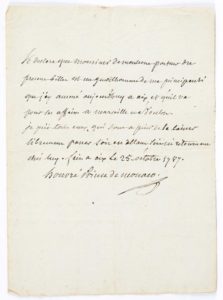 Je declare que monsieur de monleone porteur du
present billet est un gentilhomme de ma principauté
que j'ay amené aujourdhuy a aix et qu'il va
pour les affaires a marseille
je prie tous ceux qui sont a prier de le laisser
librement passer soit en allant soit en retournant
chés luy. fait a aix le 25 octobre 1757
honoré Prince de monaco